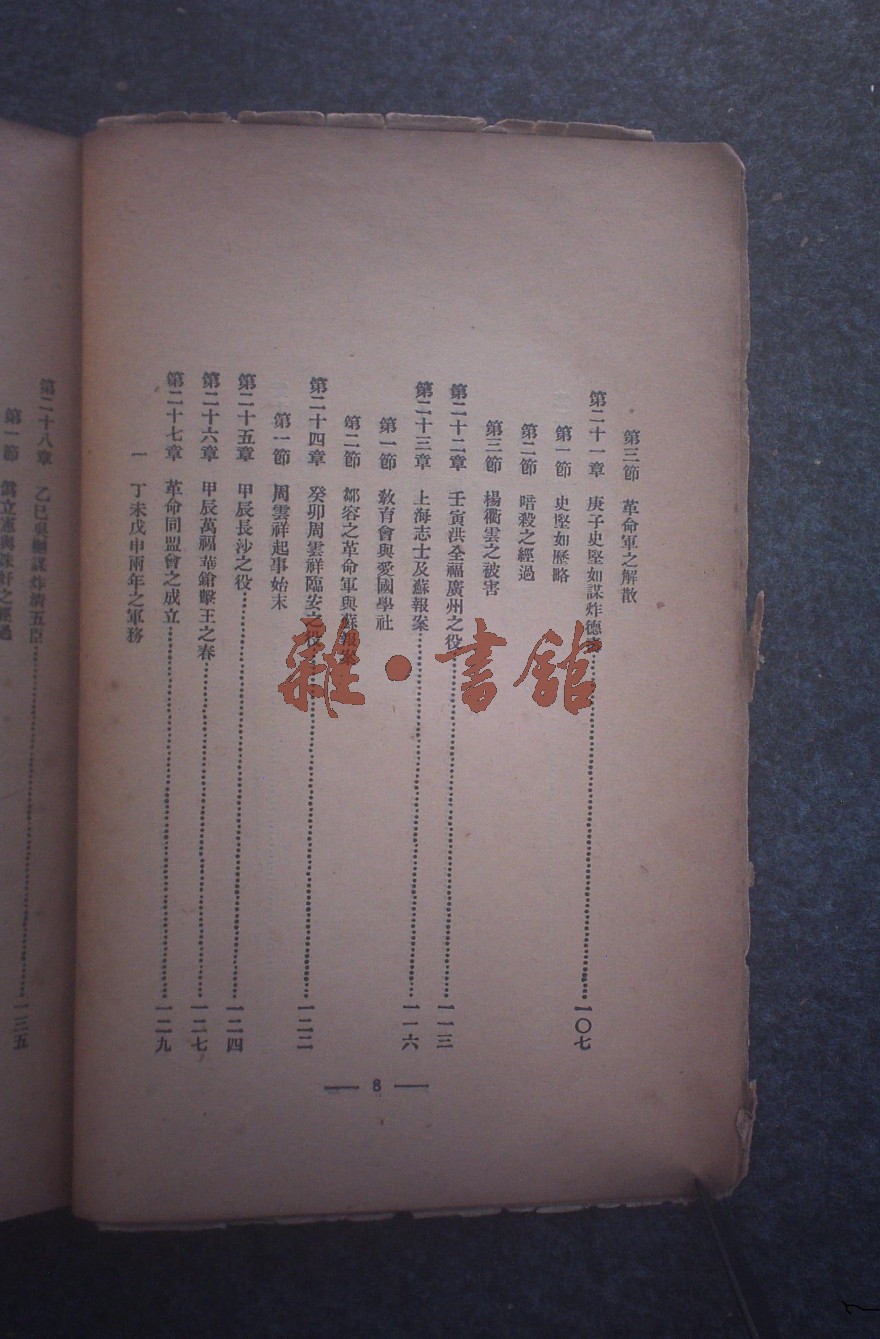 第三節　革命軍之解散
第二十一章　庚子史堅如謀炸德壽 一〇七
第一節　史堅如歷略
第二節　暗殺之經過
第三節　楊衢雲之被害
第二十二章　壬寅洪全福廣州之役 一一三
第二十三章　上海志士及蘇報案 一一六
第一節　敎育會與愛國學社
第二節　鄒容之革命軍與蘇報案
第二十四章　癸卯周雲祥臨安之役 一二二
第一節　周雲祥起事始末
第二十五章　甲辰長沙之役 一二四
第二十六章　甲辰萬福華鎗擊王之春 一二七
第二十七章　革命同盟會之成立 一二九
一　丁未戊申兩年之軍務
8
第二十八章　乙巳吳樾謀炸淸五臣 一三五
第一節　僞立憲與
之經過
雜·書館